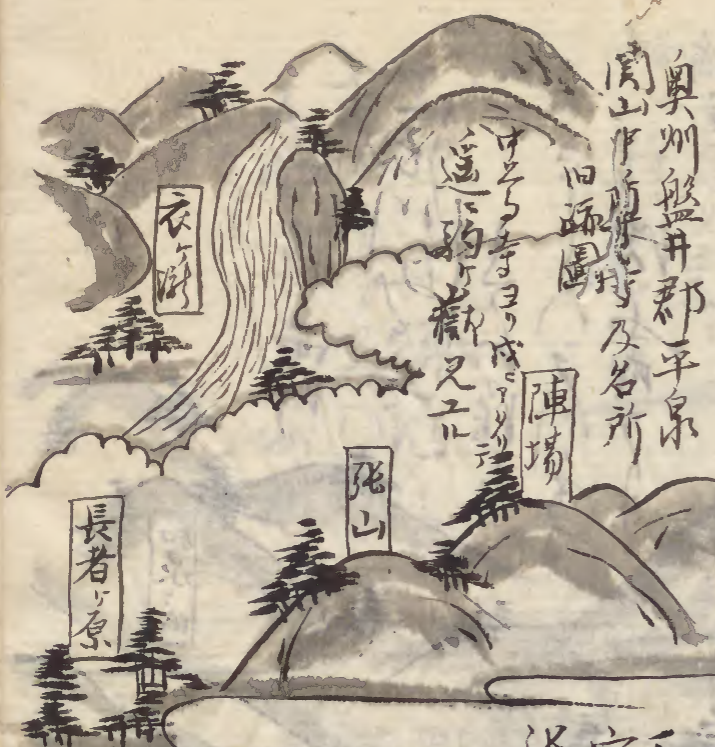 奥州盤井郡平泉
関山中尊寺及名所
旧跡圖
中尊寺ヨリ戌ニアタリテ
遥ニ駒ヶ嶽見ユル
陣場
衣ヶ瀧
張山
長者ヶ原